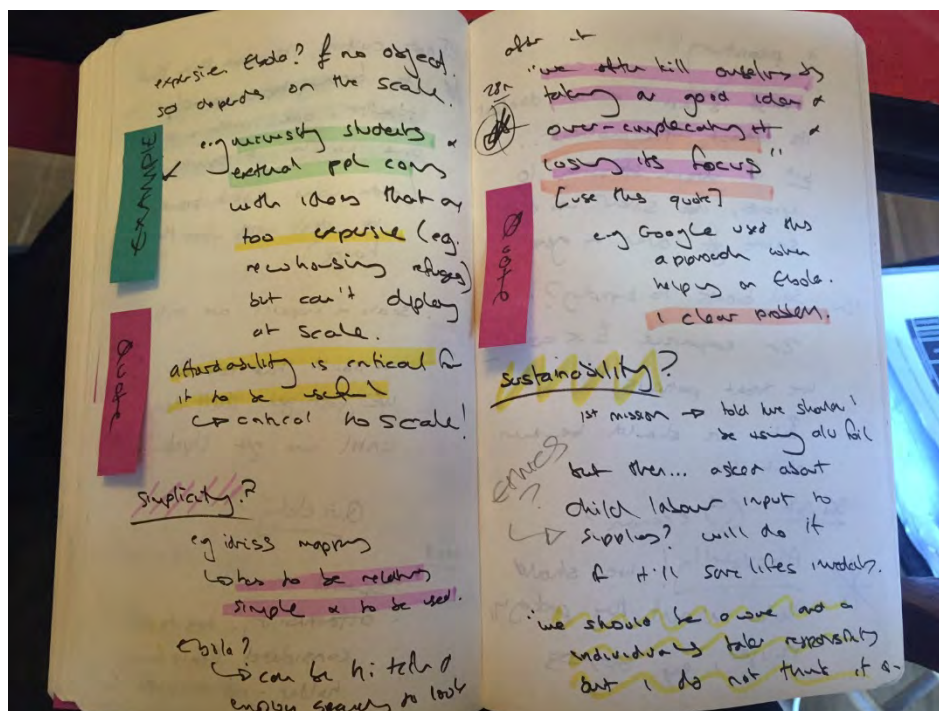 expensive Ebola? if no object.
so depends on the scale.
EXAMPLE
e.g university students &
external ppl come
with ideas that are
too expensive (eg.
rehousing refugees)
but can't deploy
at scale.
Quote
affordability is critical for
it to be useful
↳ critical to scale!
simplicity?
eg idriss mapping
↳ has to be relatively
simple & to be used.
Ebola?
↳ can be hi tech &
employ security to look
after it
"we often kill ourselves by
28r
taking a good idea &
over-complicating it &
losing its focus"
[use this quote]
Quote
e.g Google used this
approach when
helping on Ebola.
1 clear problem.
sustainability?
1st mission → told we shouldn't
be using alu foil
but then... asked about
ethics?
child labour input to
↳ supplies? will do it
if it'll save lifes
"we should be aware and
individually take responsibility
but I do not think it